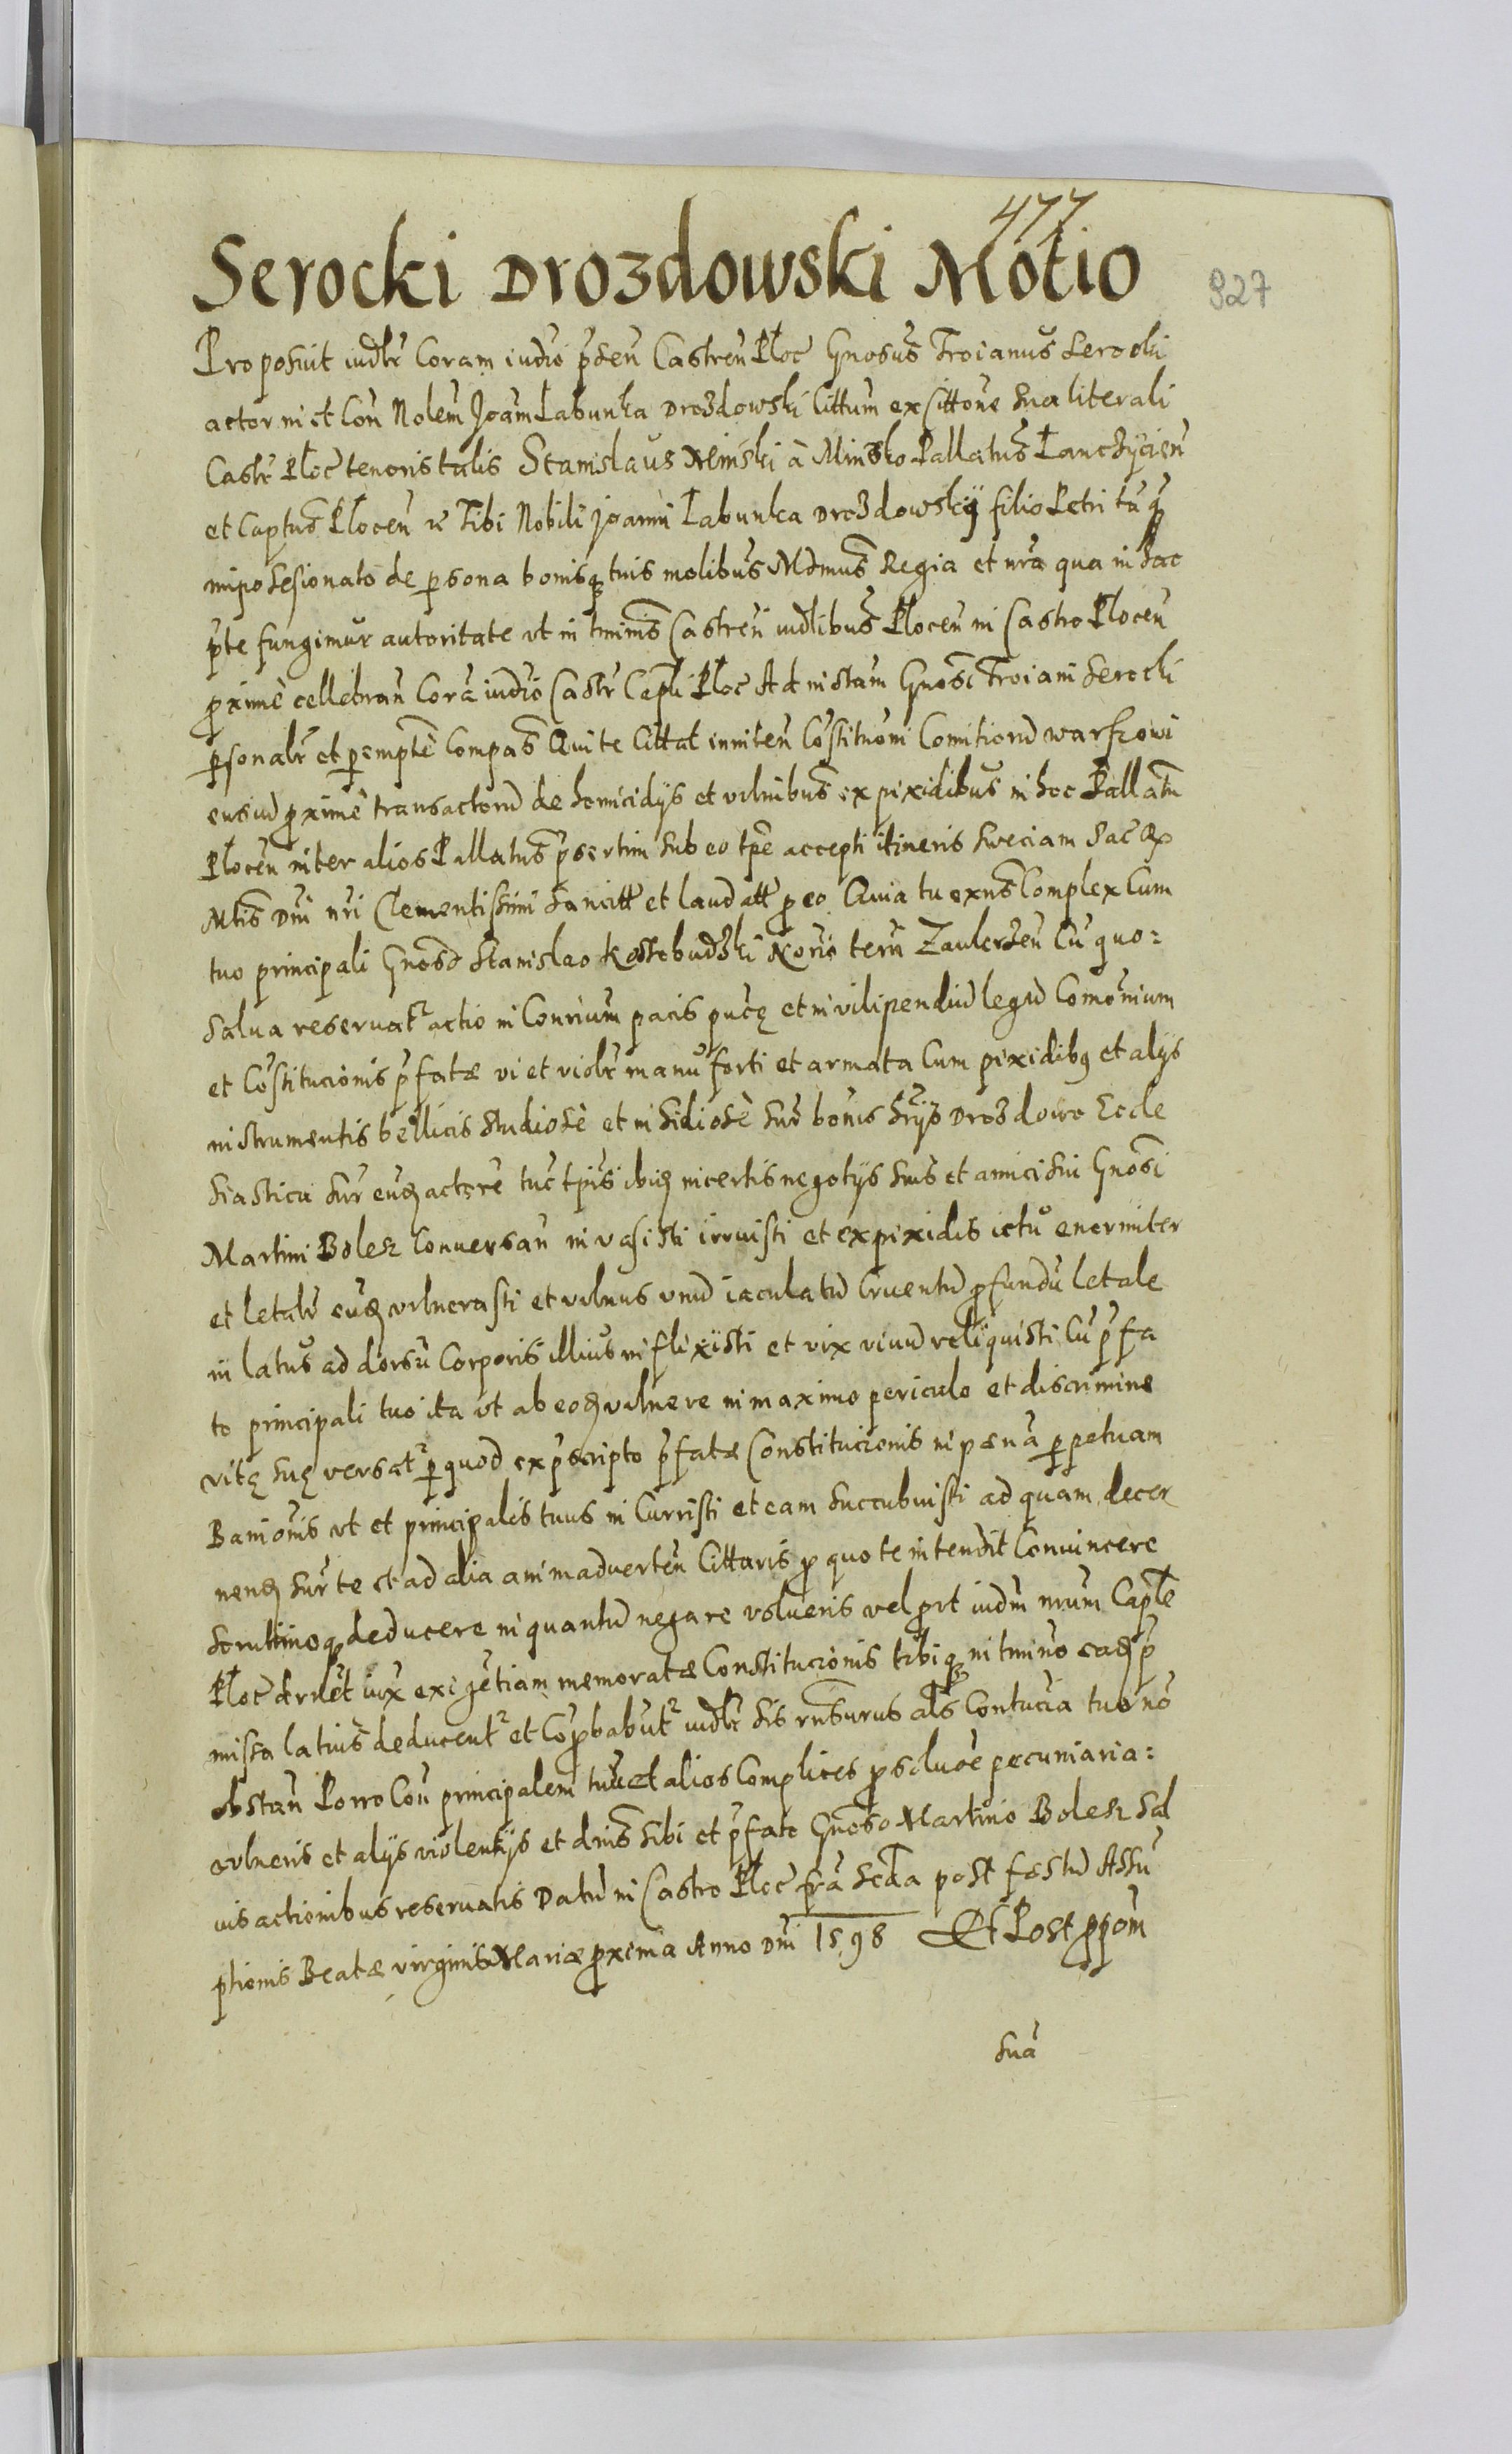 477
Serocki Drozdowski Motio
927
Proposuit iudlr Coram iudio pdsen Castren Ploc Gnosus Troianus Serocki
actor in et Con Nolem Joam Labunka Drozdowski Cittum ex Cittone sua literali
Castr Ploc tenoris talis Stanislaus Minski a Minsko Pallatus Lanczycien
et Captus Plocen Tibi Nobili Joanni Labunka Drozdowskij filio Petri tuq
imposesionato de psona bonisq tuis molibus Mdmus Regia et nra qua in hac
pte fungimur autoritate vt in tminis Castren iudlibus Plocen in Castro Plocen
proxime cellebran Cora iudio Castr Capli Ploc Ad instam Gnosi Troiani Serocki
psonalr et peremptie Compas Qui te Cittat inniten Costituoni Comitioru warszowi
ensiu proxime transactoru de homicidijs et vulnibus ex pixidibus in hoc Pallatu
Plocen inter alios Pallatus psertim sub eo tpe accepti itineris Sueciam Sac R
Mtis Dni nri Clementissimi sancitt et laudatt pro eo Quia tu exns Complex Cum
tuo principali Gnoso Stanislao Kostobudzki Noris terra Zaukrzen Cu quo:
salua reseruat actio in Conrium pacis puce et in vilipendiu legu Comonium
et Costitucionis pfatæ vi et violr manu forti et armata Cum pixidibq et alijs
instrumentis bellicis studiose et insidiose sur bonis Drozdowo Eccle
siastica sur eud actore tuc tpis ibid in certis negotijs suis et amici sui Gnosi
Martini Bolesz Conuersan inuasisti irruisti et ex pixidis ictu enormiter
et letalr eud vulnerasti et vulnus vnu iaculatu Cruentu profundu letale
in latus ad dorsu Corporis illius inflixisti et vix viuu reliquisti Cu pfa
to principali tuo ita vt ab eod vulnere in maximo periculo et discrimine
vite sue versat per quod ex pscripto pfatæ Constitucionis in pæna perpetuam
Banionis vt et principalis tuus in Curristi et eam succubuisti ad quam decer
nend sur te et ad alia animaduerten Cittaris pro quo te intendit Conuincere
scrutinoq deducere in quantu negare volueris vel prout iudm nrum Caple
Ploc drnet iux exigetiam memoratæ Constitucionis tibiq in tmino ead p
missa latius deducent et Coprobabut iudlr sis rnsurus als Contucia tua no
obstan Porro Con principalem tuu et alios Complices pro solue pecuniaria:
vulneris et alijs violentijs et dnis sibi et pfato Gnoso Martino Bolesz sal
uis actionibus reseruatis Datu in Castro Ploc fra Scda post festu Assu
ptionis Beatæ virginis Mariæ proxima Anno Dni 1598 Et Post propom
sua